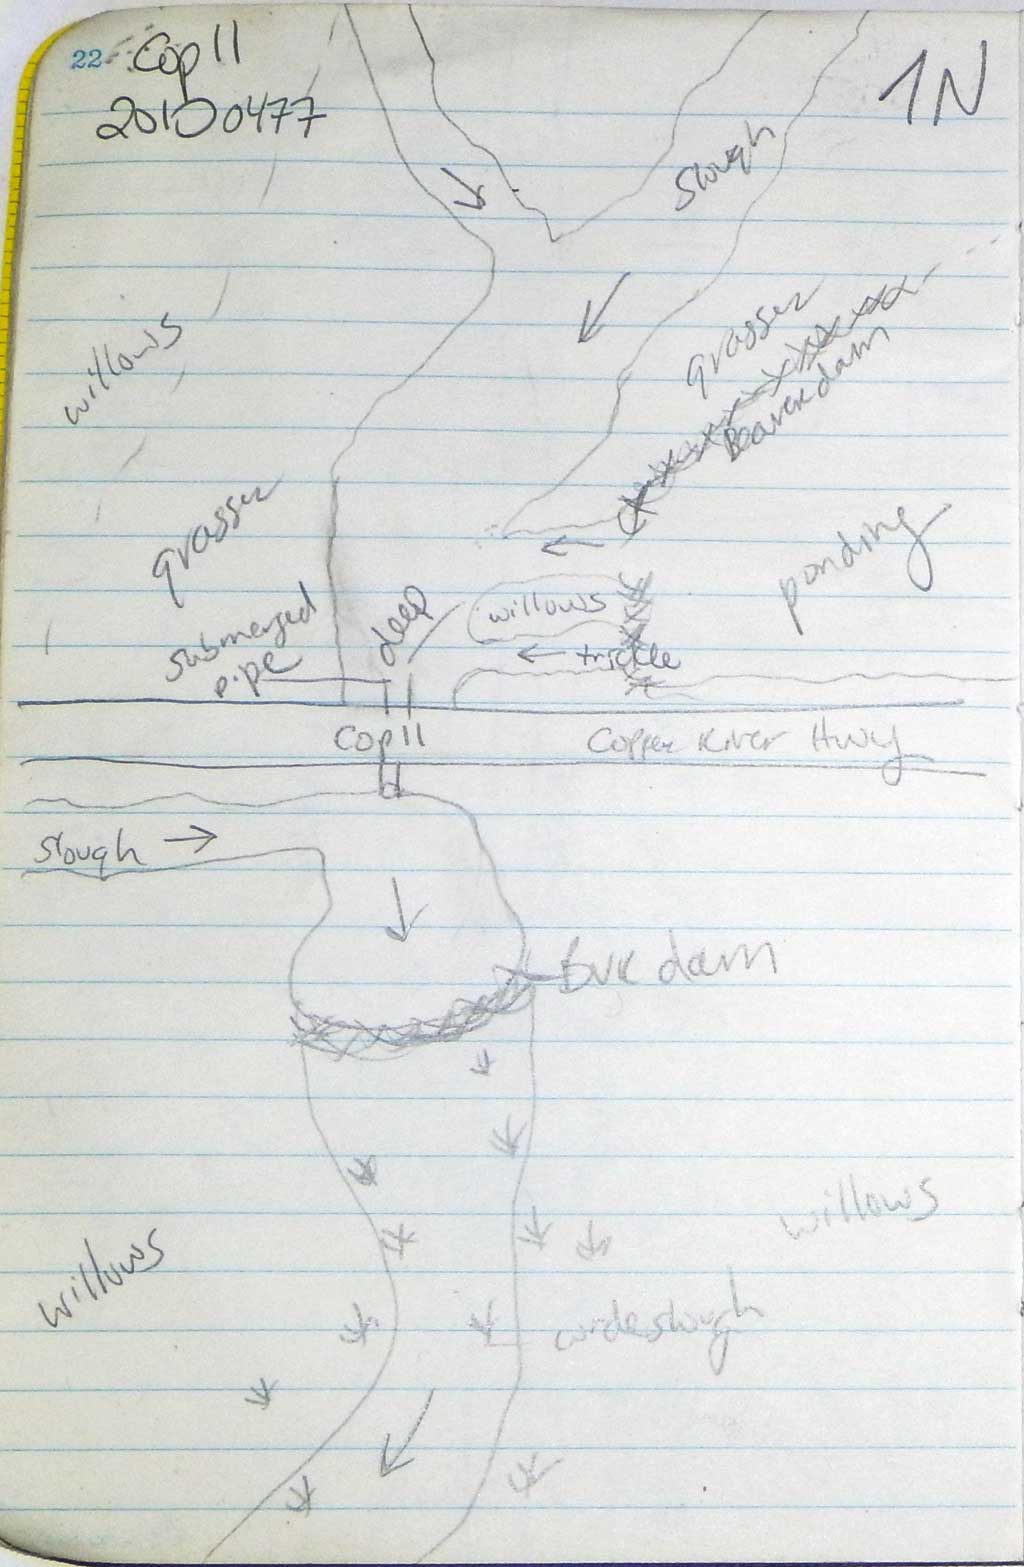 22
Cop 11
20100477
1N
slough
willows
grasses
Beaver dam
grasses
ponding
submerged
pipe
deep
willows
trickle
Cop 11
Copper River Hwy
slough
BVR dam
willows
willows
wide slough